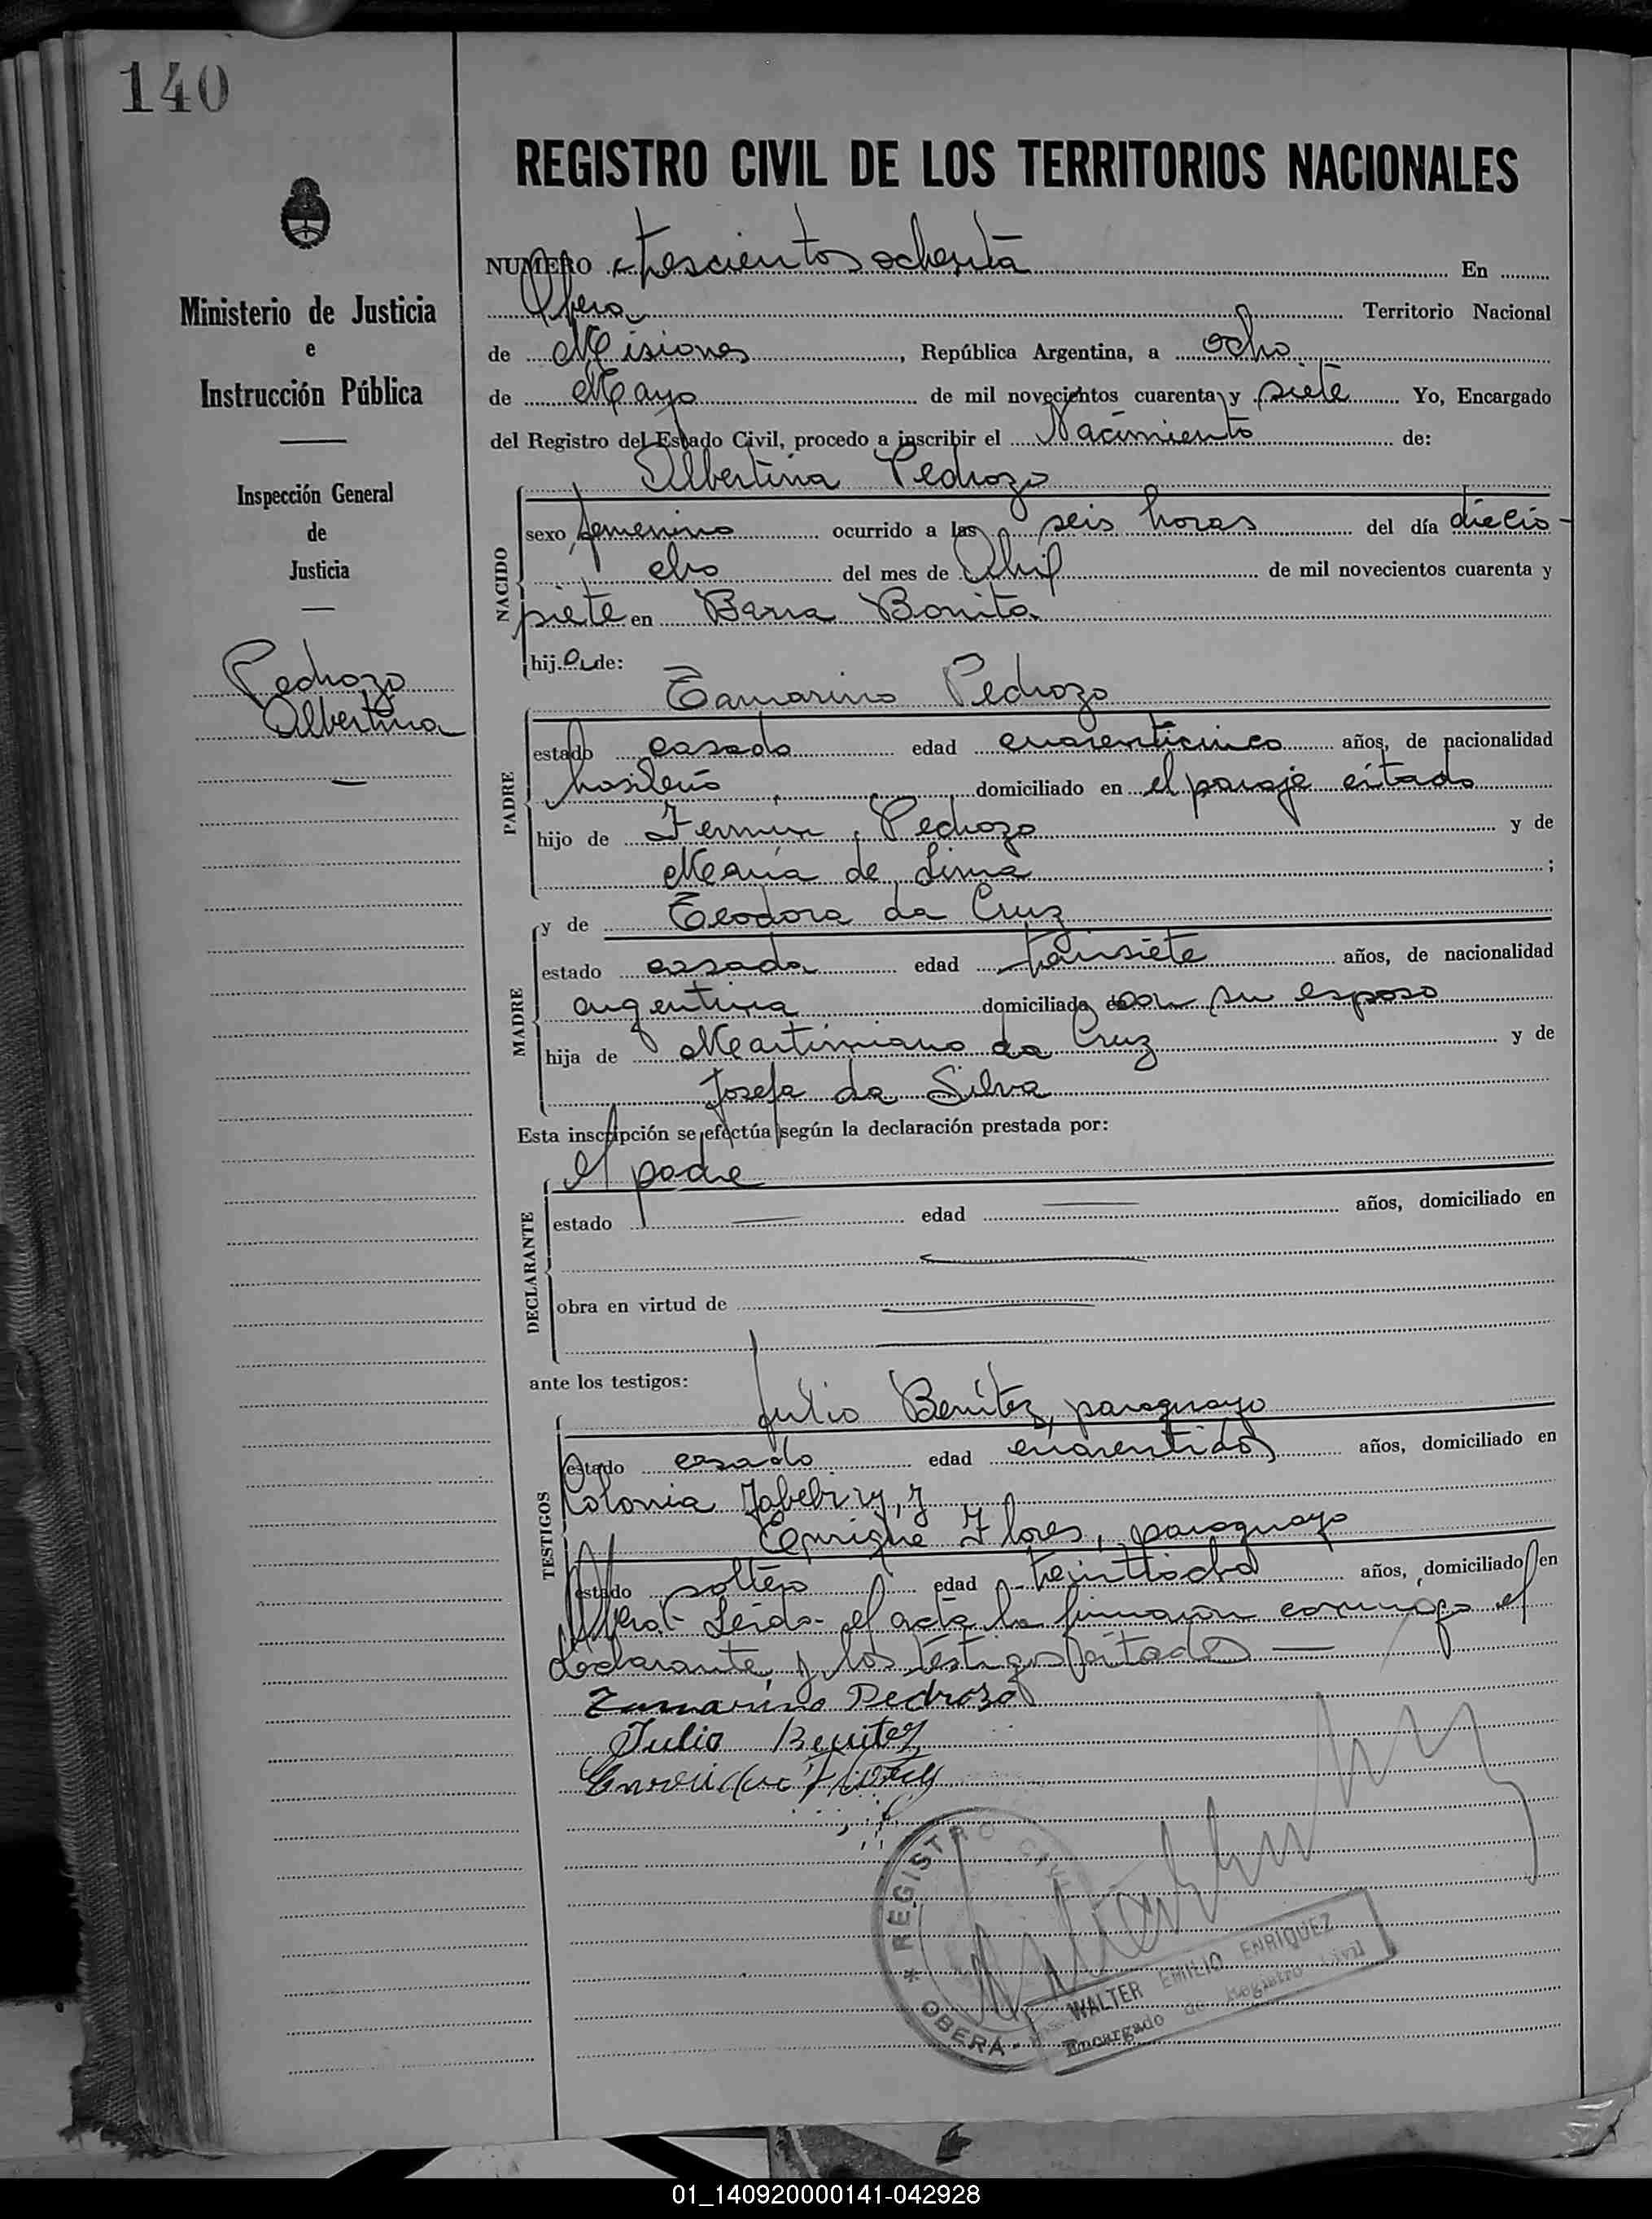 140
REGISTRO CIVIL DE LOS TERRITORIOS NACIONALES
NUMERO trescientos ochenta En
Obera Territorio Nacional
de Misiones, República Argentina, a ocho
de Mayo de mil novecientos cuarenta y siete Yo, Encargado
del Registro del Estado Civil, procedo a inscribir el Nacimiento de:
Albertina Pedrozo
NACIDO
sexo femenino ocurrido a las seis horas del día diecio-
cho del mes de Abril de mil novecientos cuarenta y
siete en Barra Bonita
hij a de:
Tamarino Pedrozo
PADRE
estado casado edad cuarenticinco años, de nacionalidad
brasileño domiciliado en el paraje citado
hijo de Fermin Pedrozo y de
María de Lima ;
y de Teodora da Cruz
MADRE
estado casada edad treinsiete años, de nacionalidad
argentina domiciliada con su esposo
hija de Martimiano da Cruz y de
Josefa da Silva
Esta inscripción se efectúa según la declaración prestada por:
el padre
DECLARANTE
estado — edad — años, domiciliado en
obra en virtud de
ante los testigos:
Julio Benítez, paraguayo
TESTIGOS
estado casado edad cuarentidos años, domiciliado en
Colonia Yabebiry, y
Enrique Flores, paraguayo
estado soltero edad treintiocho años, domiciliado en
Obera.- Leida el acta la firmaron conmigo el
declarante y los testigos citados —
Zamarino Pedrozo
Julio Benitez
Enrrique Flores
REGISTRO CIVIL
* OBERA -
WALTER EMILIO ENRIQUEZ
Encargado de Registro Civil
Ministerio de Justicia
e
Instrucción Pública
Inspección General
de
Justicia
Pedrozo
Albertina
—
01_140920000141-042928